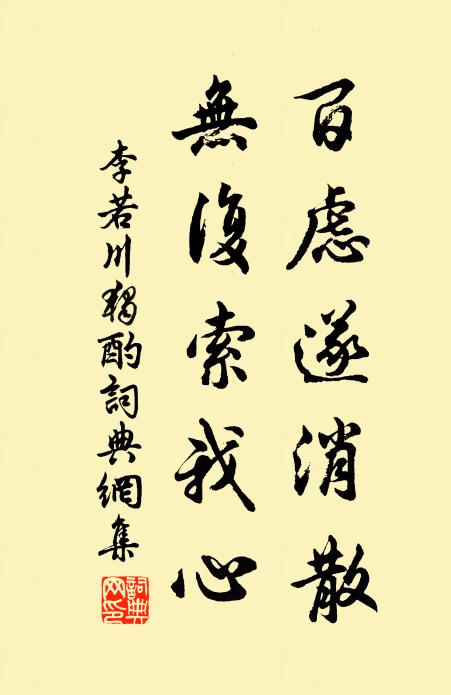 百慮遂消散
無復索我心
李若川獨酌詞典網集
詞典
网印